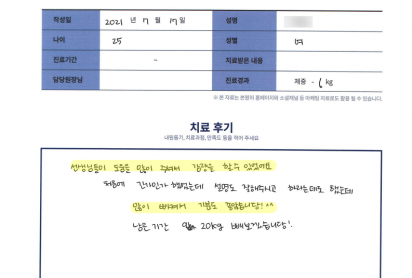 작성일 2021 년 7 월 17일 성명
나이 25 성별 여
진료기간 - 치료받은 내용
담당원장님 진료경과 체중 -6kg
※ 본 자료는 본원의 홈페이지와 소셜채널 등 마케팅 자료로도 활용 될 수 있습니다.
치료 후기
내원동기, 치료과정, 만족도 등을 적어 주세요
선생님들이 도움을 많이 주셔서 감량을 할 수 있었어요
처음에 긴가민가 했었는데 설명도 잘해주시고 하라는데로 했는데
많이 빠져서 기분도 좋았습니다! ^^
남은 기간 20kg 빼보겠습니다!